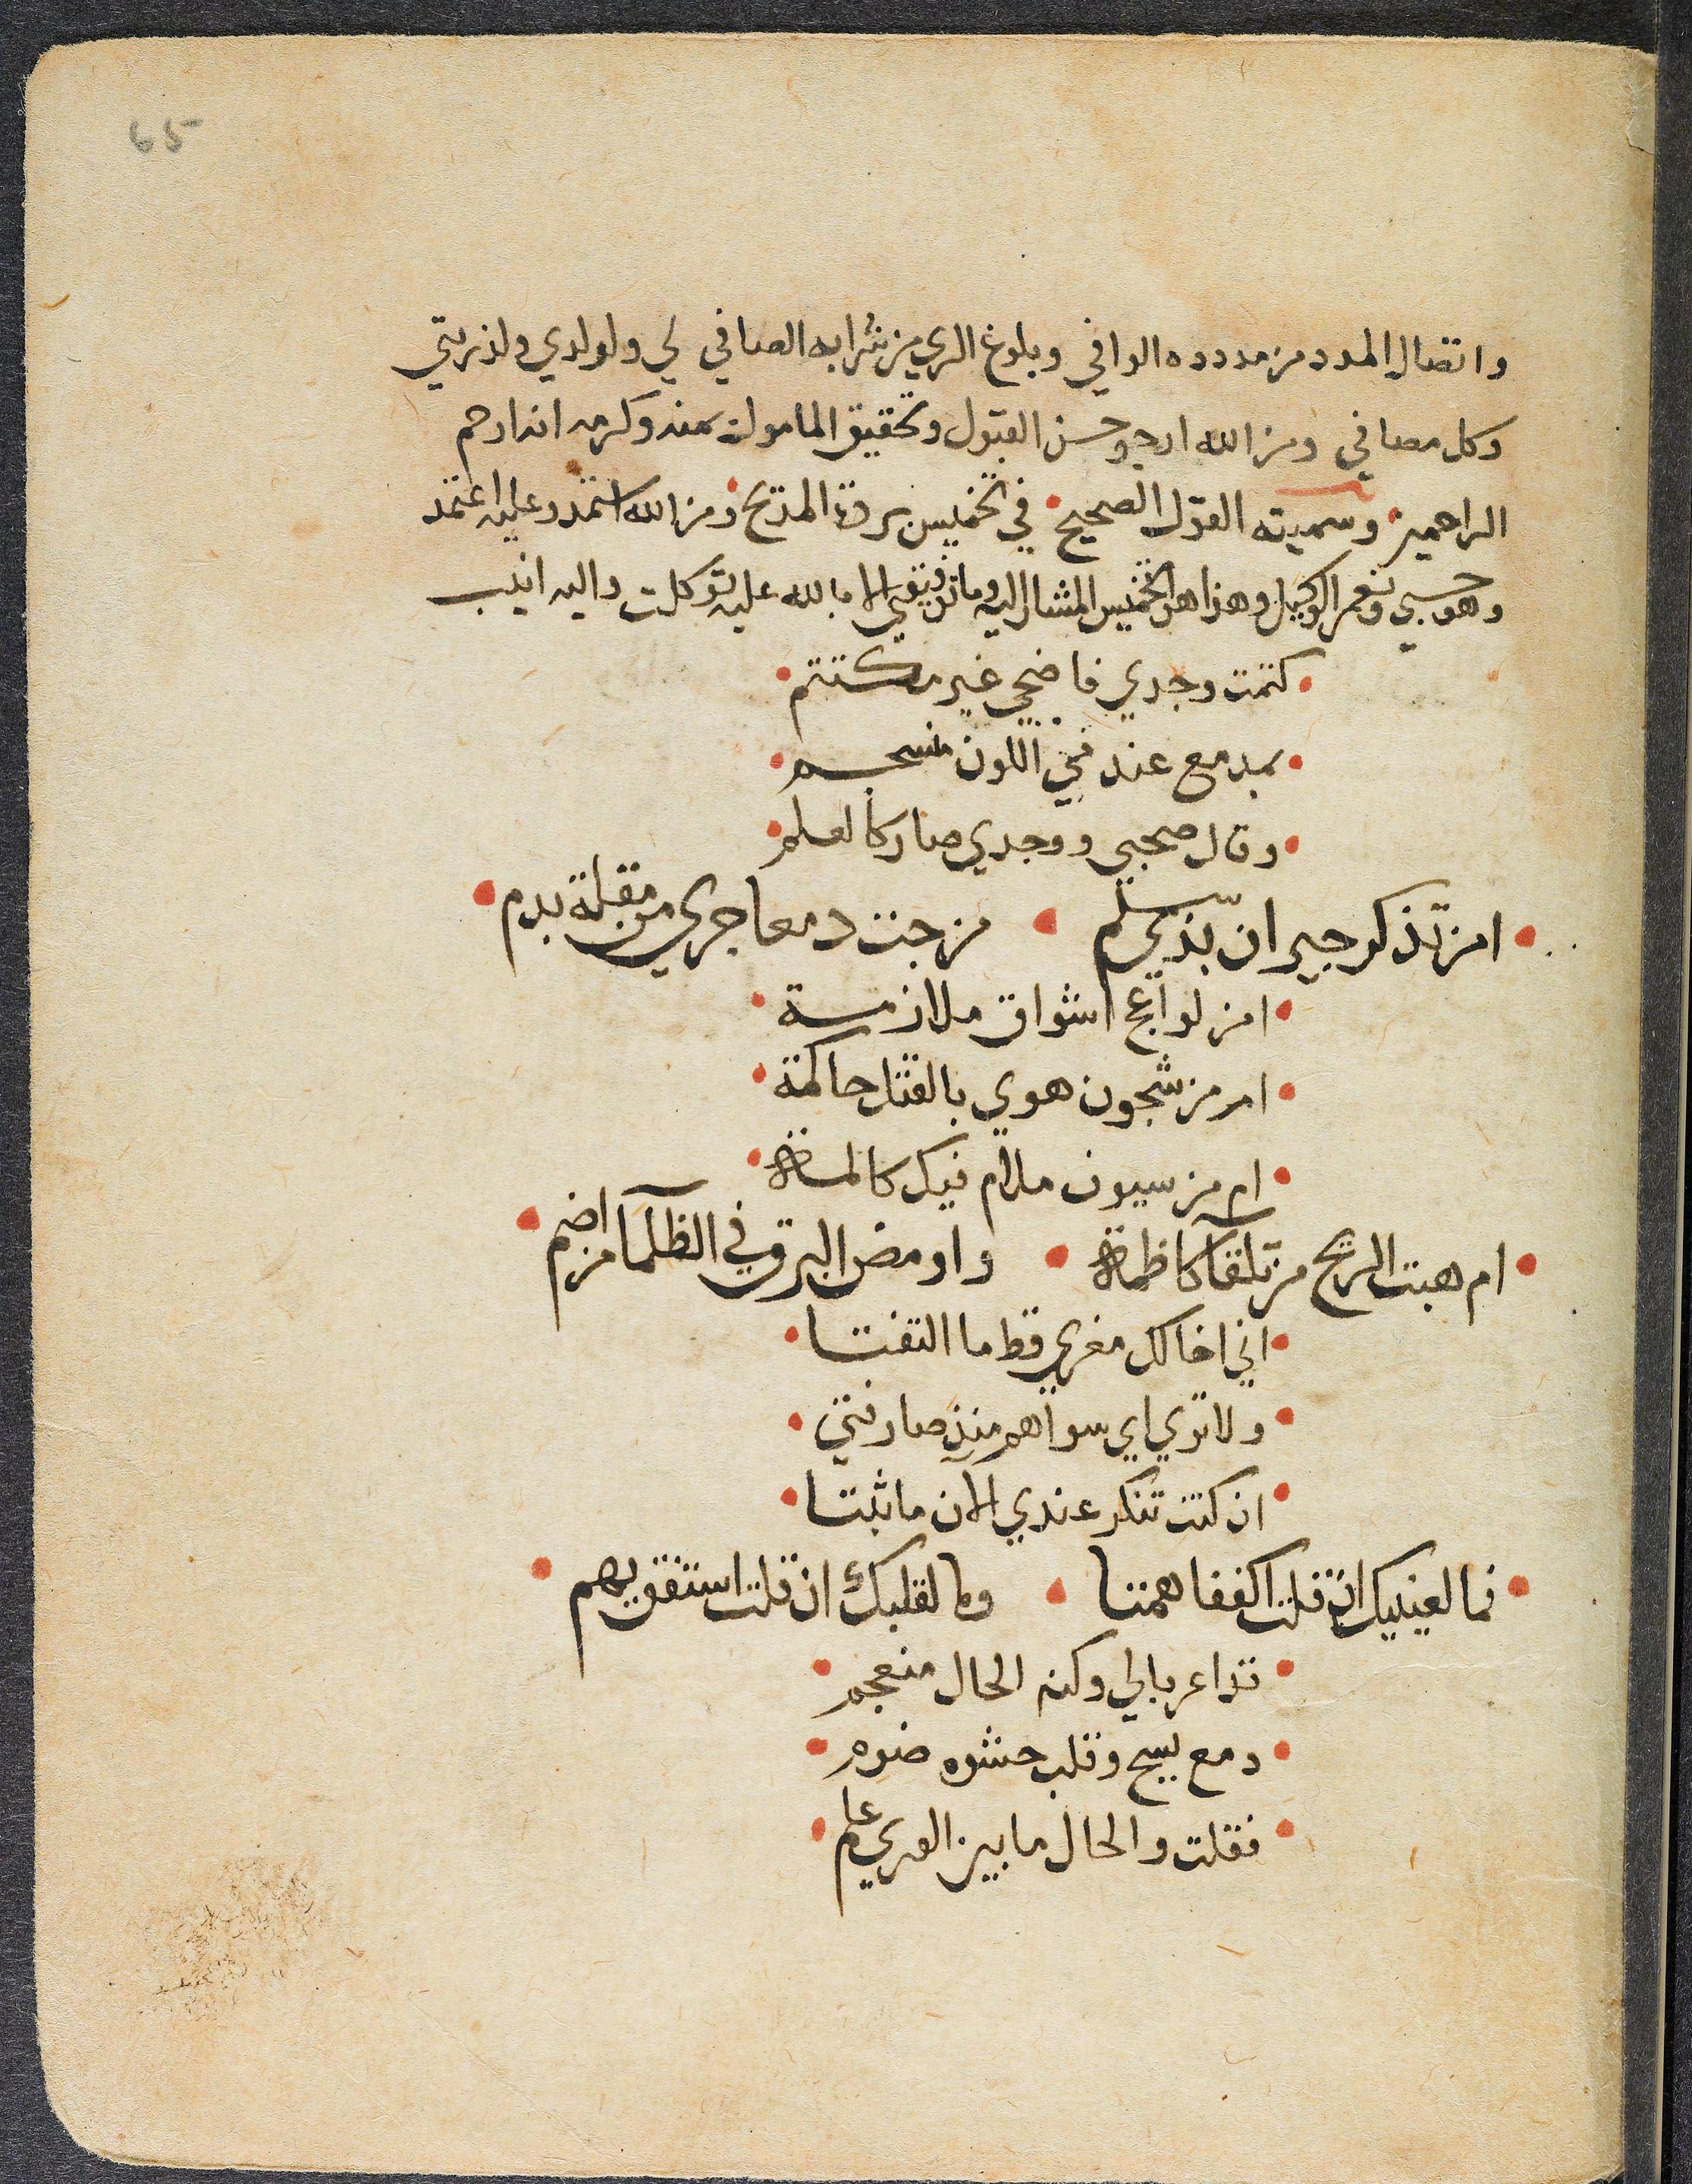 65
واتصال المدد من مدده الوافي وبلوغ الري من شرابه الصافي لي ولولدي ولذريتي
وكل مصافي ومن الله ارجو حسن القبول وتحقيق المامول بمنه وكرمه انه ارحم
الراحمين وسميته القول الصحيح في تخميس بردة المديح ومن الله استمد وعليه اعتمد
وهو حسبي ونعم الوكيل وهذا هو التخميس المشار اليه وما توفيقي الا بالله عليه توكلت واليه انيب
كتمت وجدي فاضحي غير مكتتم
بمدمع عندمي اللون منسجم
وقال صحبي ووجدي صار كالعلم
امن تذكر جيران بذي سلم • مزجت دمعا جري من مقلة بدم
امن لواعج اشواق ملازمة
ام من شجون هوي بالقتل حاكمة
ام من سيوف ملام فيك كالمة
ام هبت الريح من تلقآ كاظمة • واومض البرق في الظلمآ من اضم
اني اخالك مغري قط ما التفتا
ولا تري اي سواهم منذ صار فتي
ان كنت تنكر عندي الآن ما ثبتا
فما لعينيك ان قلت اكففا همتا • وما لقلبك ان قلت استفق يهم
تداعر بالي وكنه الحال منعجم
دمع يسح وقلب حشوه ضرم
فقلت والحال ما بين الوري علم